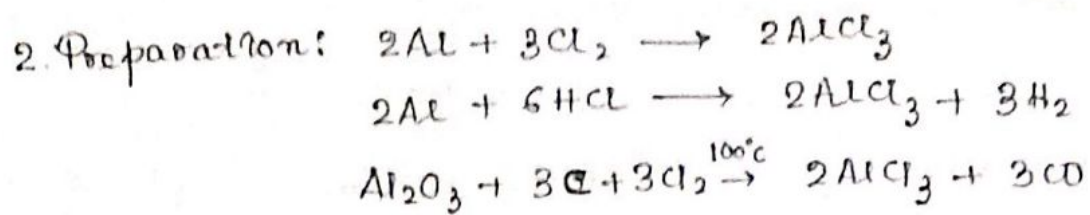 2. Preparation: 2Al + 3Cl₂ ⟶ 2AlCl₃
2Al + 6HCl ⟶ 2AlCl₃ + 3H₂
Al₂O₃ + 3C + 3Cl₂ 100°C → 2AlCl₃ + 3CO